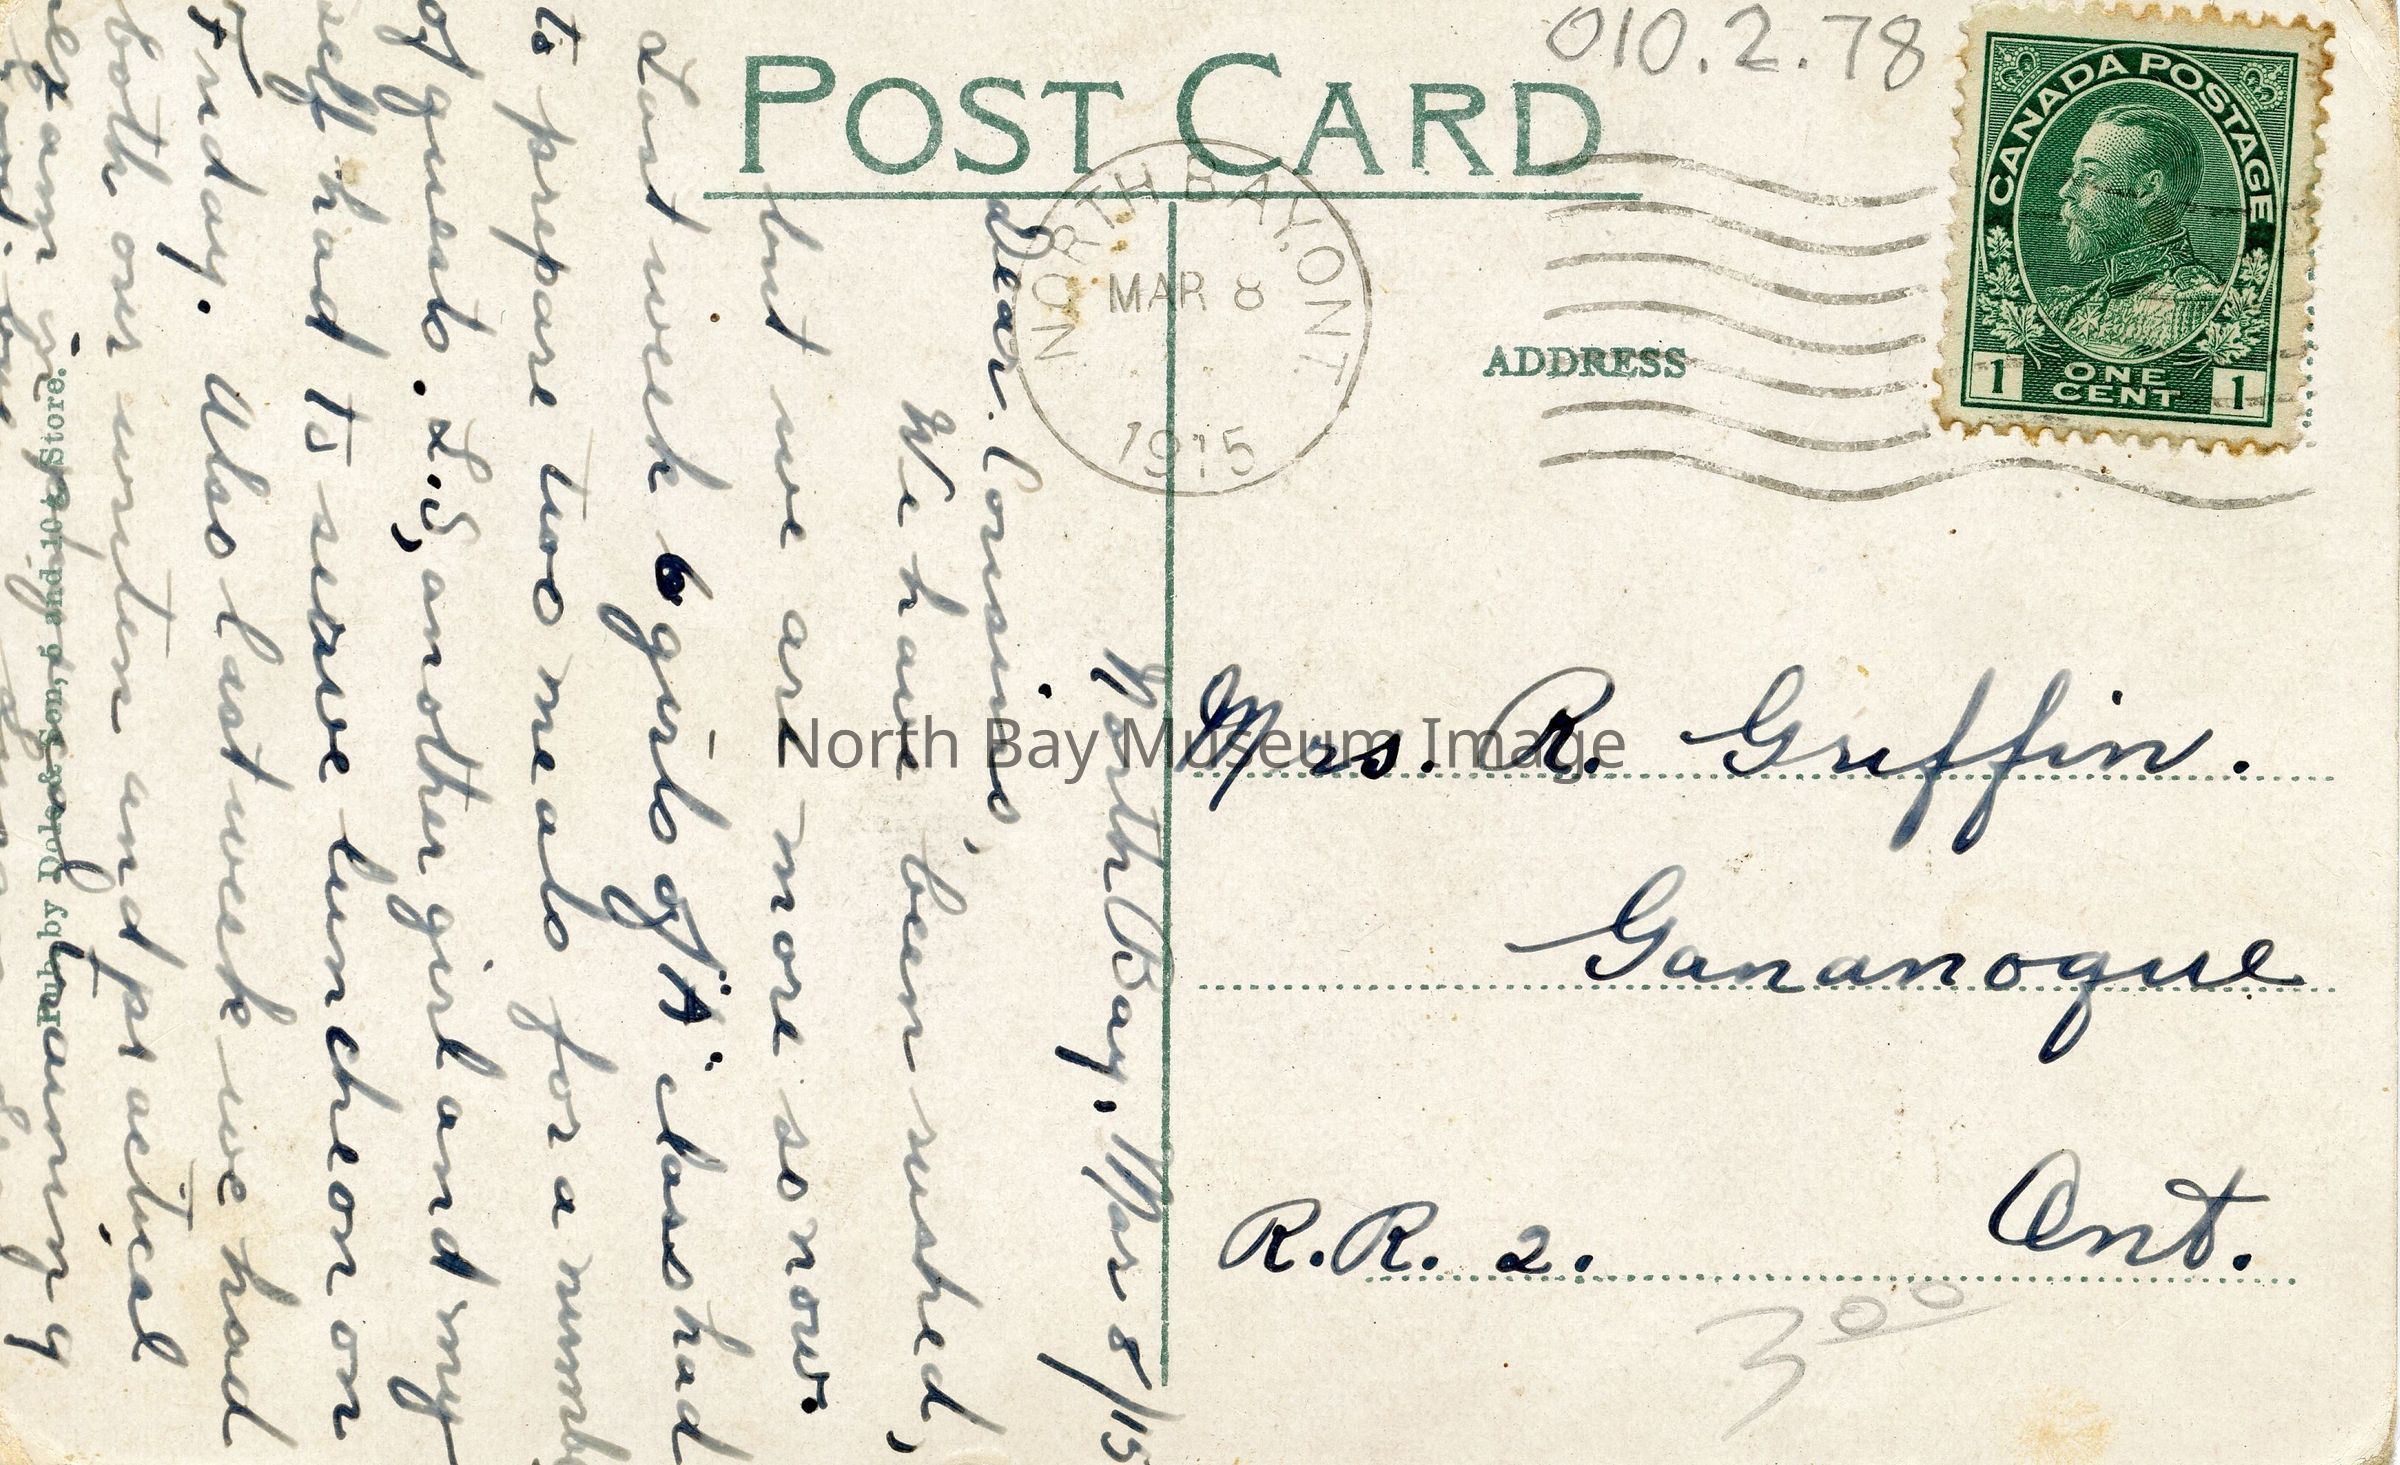 010.2.78
POST CARD
CANADA POSTAGE
1 ONE CENT 1
NORTH BAY, ONT
MAR 8
1915
ADDRESS
Mrs. R. Griffin.
Gananoque
Ont.
R.R. 2.
3 00
North Bay, Mar 8/15
Dear Cousins,
We have been rushed,
but we are more so now.
Last week 6 girls of "A" class had
to prepare two meals for a numb
of guests. L.S, another girl and my
self had to serve luncheon on
Friday. Also last week we had
both our written and practical
exam in physical training
Pub. by Dole & Son, 5 and 10¢ Store.
North Bay Museum Image